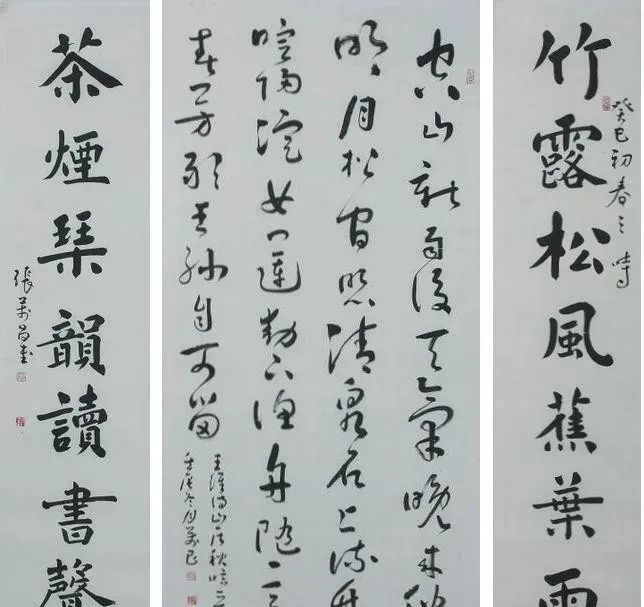 竹露松風蕉葉雨
癸巳初春之時
空山新雨後天氣晚來秋
明月松間照清泉石上流竹
喧歸浣女蓮動下漁舟隨意
春芳歇王孫自可留
王維詩山居秋暝
冬月萬昌
茶煙琴韻讀書聲
張萬昌書